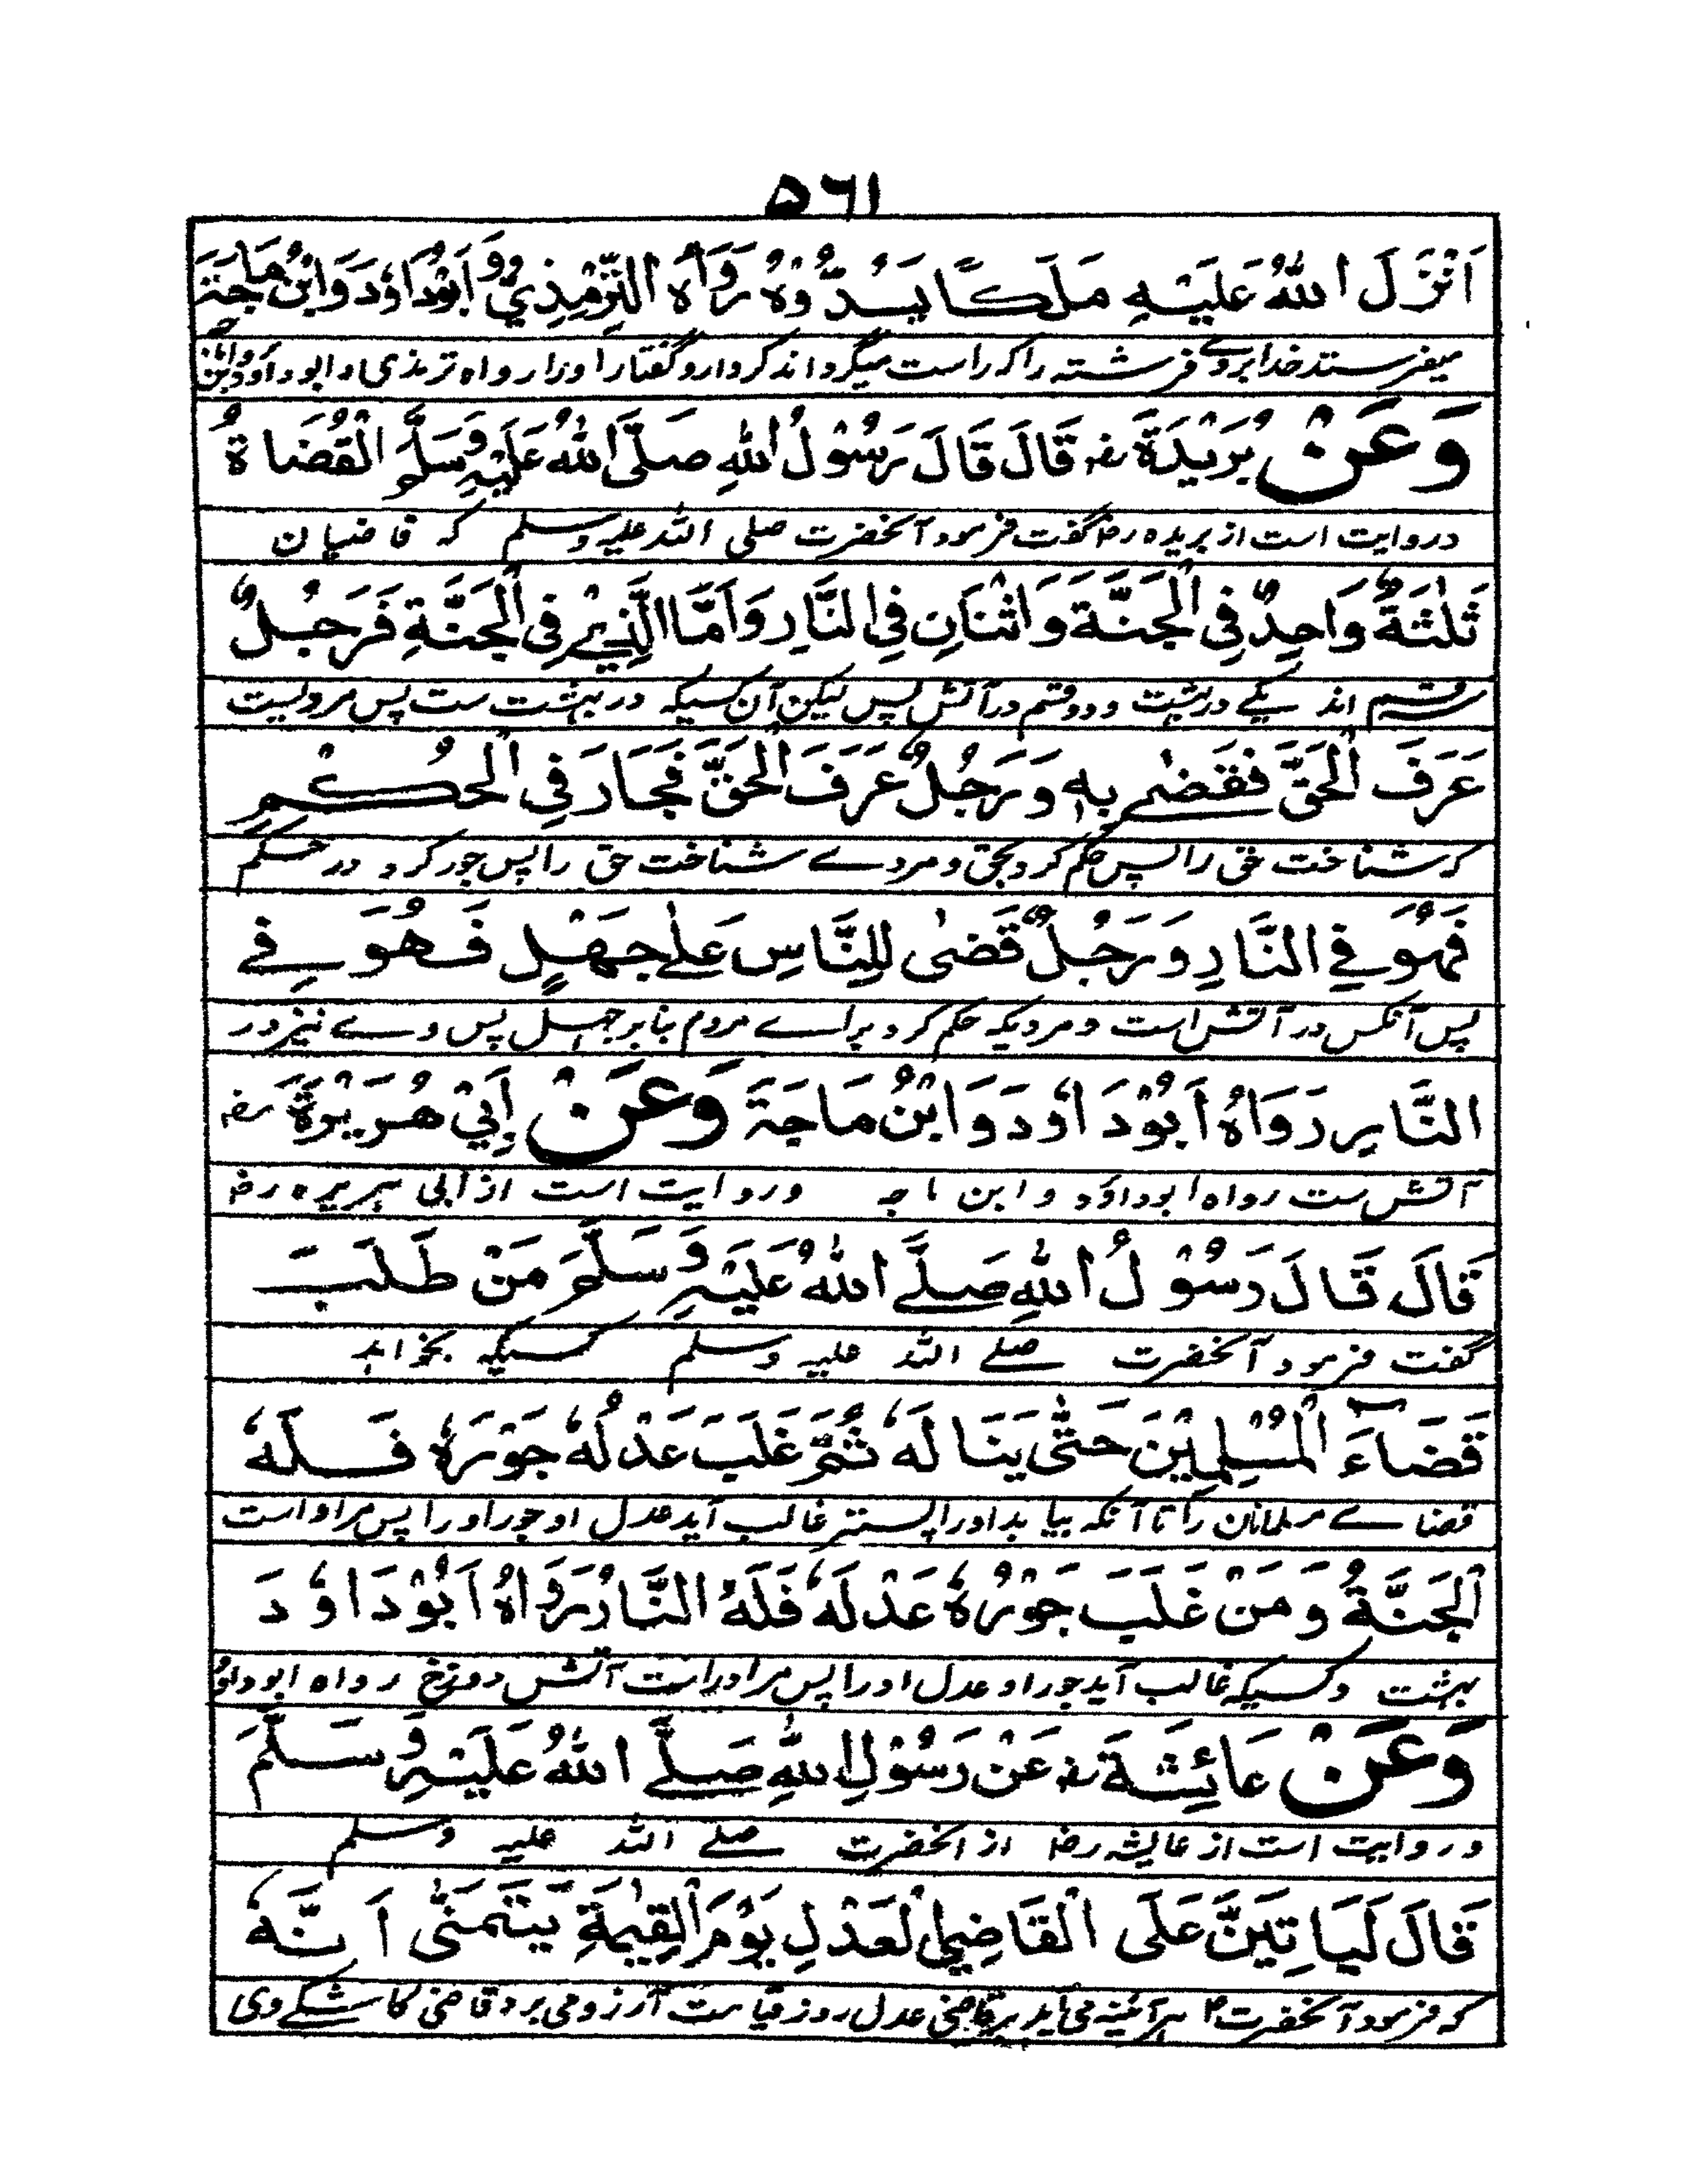 ۵۶۱
اَنْزَلَ اللهُ عَلَيْهِ مَلَكًا يُسَدِّدُهُ رَوَاهُ التِّرْمِذِيُّ وَاَبُوْدَاوٗدَ وَابْنُ مَاجَةَ
میفرستد خدا بروے فرشته را که راست میگرداند کردار و گفتار اورا رواه ترمذی و ابو داؤد وابن
وَعَنْ بُرَيْدَةَ رضہ قَالَ قَالَ رَسُوْلُ اللهِ صَلَّى اللهُ عَلَيْهِ وَسَلَّمَ الْقُضَاةُ
و روایت است از بریده رضہ گفت فرمود آنخضرت صلی الله علیه وسلم که قاضیان
ثَلٰثَةٌ وَاحِدٌ فِي الْجَنَّةِ وَاثْنَانِ فِي النَّارِ وَاَمَّا الَّذِيْ فِي الْجَنَّةِ فَرَجُلٌ
سه قسم اند یکے در بهشت و دو قسم در آتش پس لیکن آن کسیکه در بهشت ست پس مردیست
عَرَفَ الْحَقَّ فَقَضٰى بِهٖ وَرَجُلٌ عَرَفَ الْحَقَّ فَجَارَ فِي الْحُكْمِ
که شناخت حق را پس حکم کرد بحق و مردے شناخت حق را پس جور کرد در حکم
فَهُوَ فِي النَّارِ وَرَجُلٌ قَضٰى لِلنَّاسِ عَلٰى جَهْلٍ فَهُوَ فِي
پس آنکس در آتش است و مردیکه حکم کرد براے مردم بنابر جهل پس وے نیز در
النَّارِ رَوَاهُ اَبُوْدَاوٗدَ وَابْنُ مَاجَةَ وَعَنْ اَبِيْ هُرَيْرَةَ رضہ
آتش ست رواه ابوداؤد و ابن ماجه و روایت است از ابی هریره رضہ
قَالَ قَالَ رَسُوْلُ اللهِ صَلَّے اللهُ عَلَيْهِ وَسَلَّمَ مَنْ طَلَبَ
گفت فرمود آنخضرت صلے الله علیه وسلم کسیکه بخواهد
قَضَاءَ الْمُسْلِمِيْنَ حَتّٰى يَنَالَهٗ ثُمَّ غَلَبَ عَدْلُهٗ جَوْرَهٗ فَلَهُ
قضاے مسلمانان را تا آنکه بیابد اورا پستر غالب آید عدل او جور اورا پس مر اوراست
الْجَنَّةُ وَمَنْ غَلَبَ جَوْرُهٗ عَدْلَهٗ فَلَهُ النَّارُ رَوَاهُ اَبُوْدَاوٗدَ
بهشت و کسیکه غالب آید جور او عدل اورا پس مر اوراست آتش دوزخ رواه ابوداؤد
وَعَنْ عَائِشَةَ رضہ عَنْ رَسُوْلِ اللهِ صَلَّے اللهُ عَلَيْهِ وَسَلَّمَ
و روایت است از عایشه رضہ از آنخضرت صلے الله علیه وسلم
قَالَ لَيَاْتِيَنَّ عَلَى الْقَاضِي الْعَدْلِ يَوْمَ الْقِيٰمَةِ يَتَمَنّٰى اَنَّهٗ
که فرمود آنخضرت ص هرآئینه می آید بر قاضی عدل روز قیامت آرزو می برد قاضی کاشکے وی